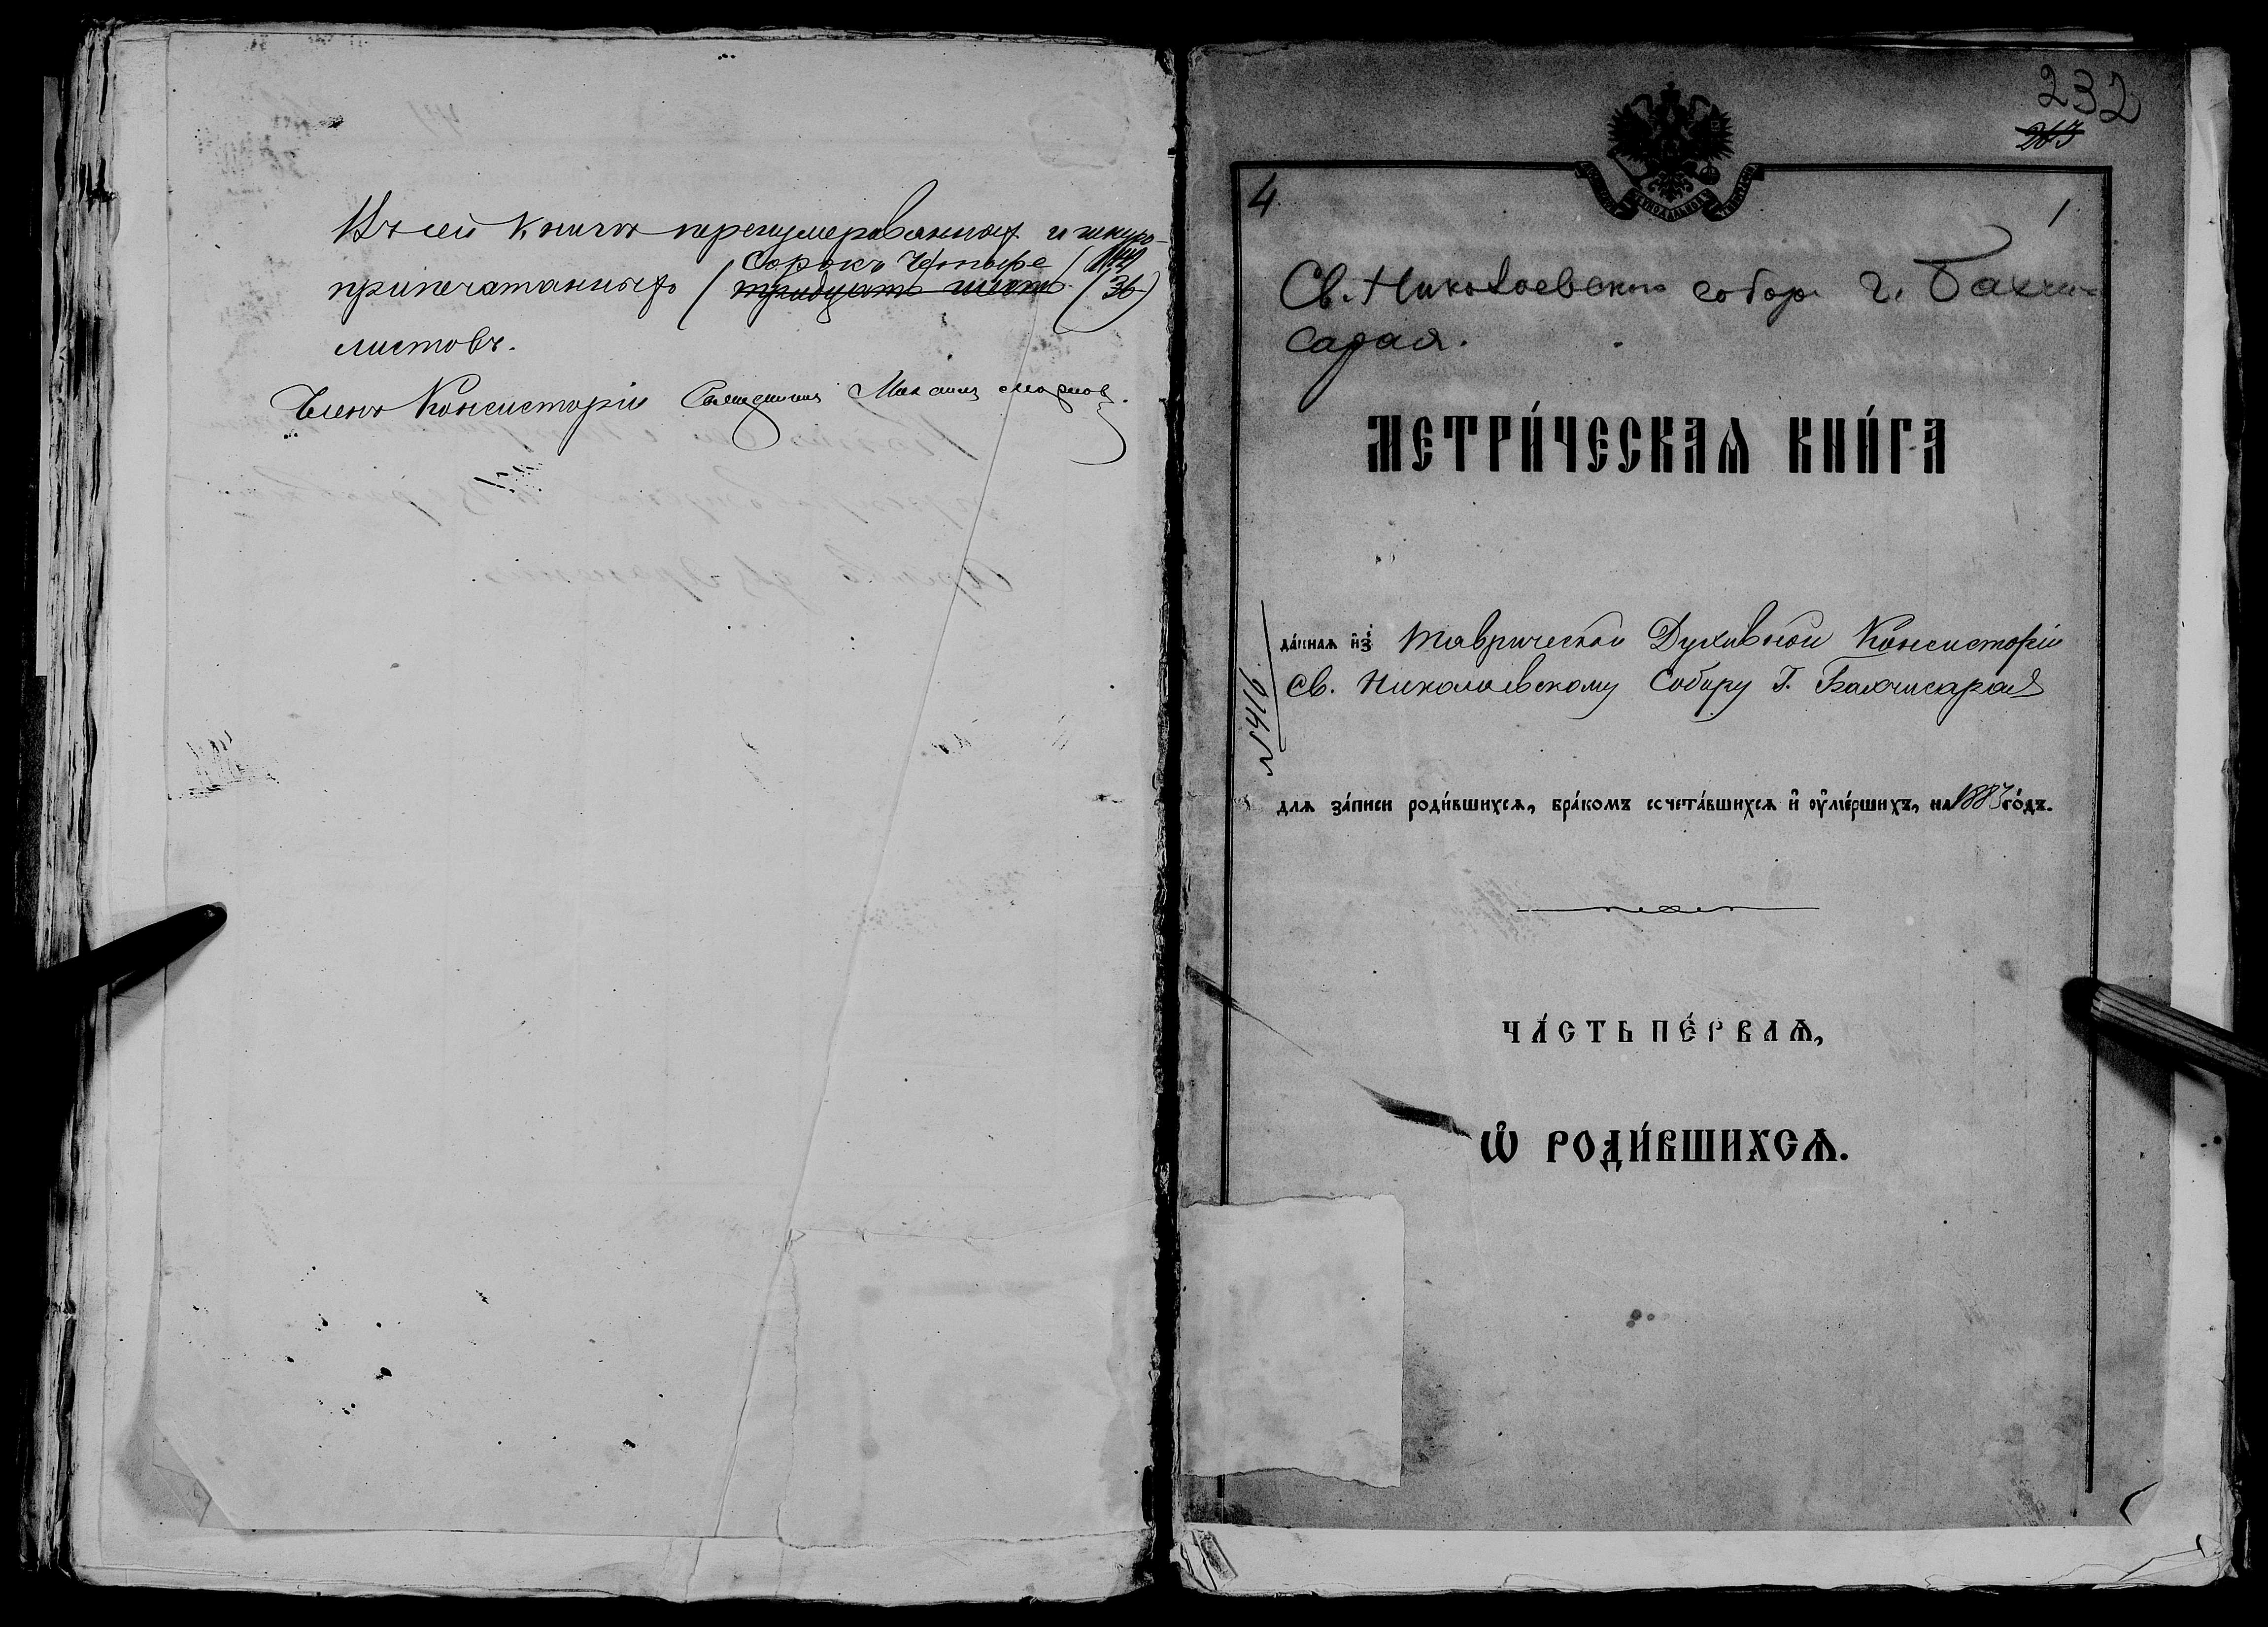 Въ сей книгѣ перенумерованныхъ и шнуро-
припечатанныхъ (тридцать шесть (36)
Сорокъ Четыре (44)
листовъ.
Членъ Консисторіи Священникъ Михаилъ
232
4
1
Св. Николаевскаго собора г. Бахчи-
сарая.
МЕТРИ́ЧЕСКАѦ КНИ́ГА
да́ннаѧ и҆зъ Таврической Духовной Консисторіи
Св. Николаевскому Собору Г. Бахчисарая
№ 5416
длѧ за́писи роди́вшихсѧ, бра́комъ сочета́вшихсѧ и҆ ᲂу҆ме́ршихъ, на 1883 го́дъ.
ЧА́СТЬ ПЕ́РВАѦ,
Ѡ҆ РОДИ́ВШИХСѦ.